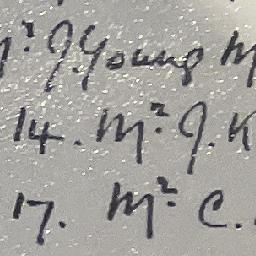 J. Young M
14. Mr. J. K
17. Mr. C.